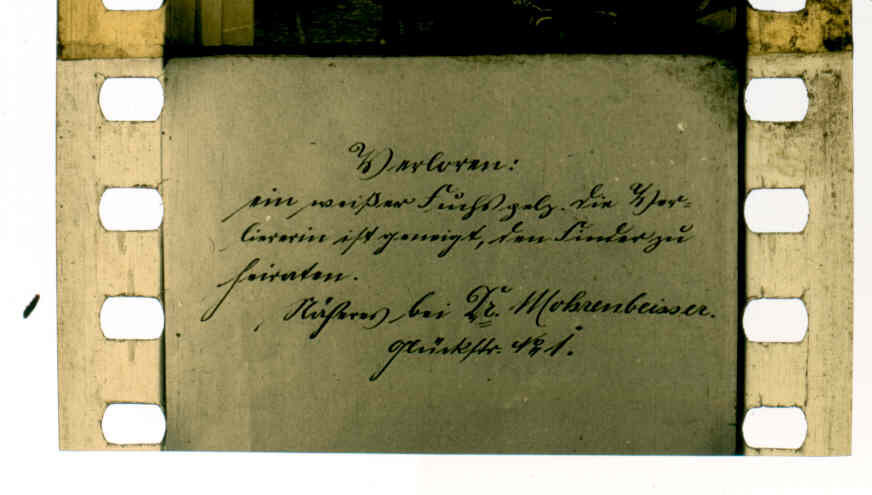 Verloren:
ein weißer Fuchspelz. Die Ver-
liererin ist geneigt, den Finder zu
heiraten.
Näheres bei Dr. Mohrenbeisser.
Glückstr. No 1.